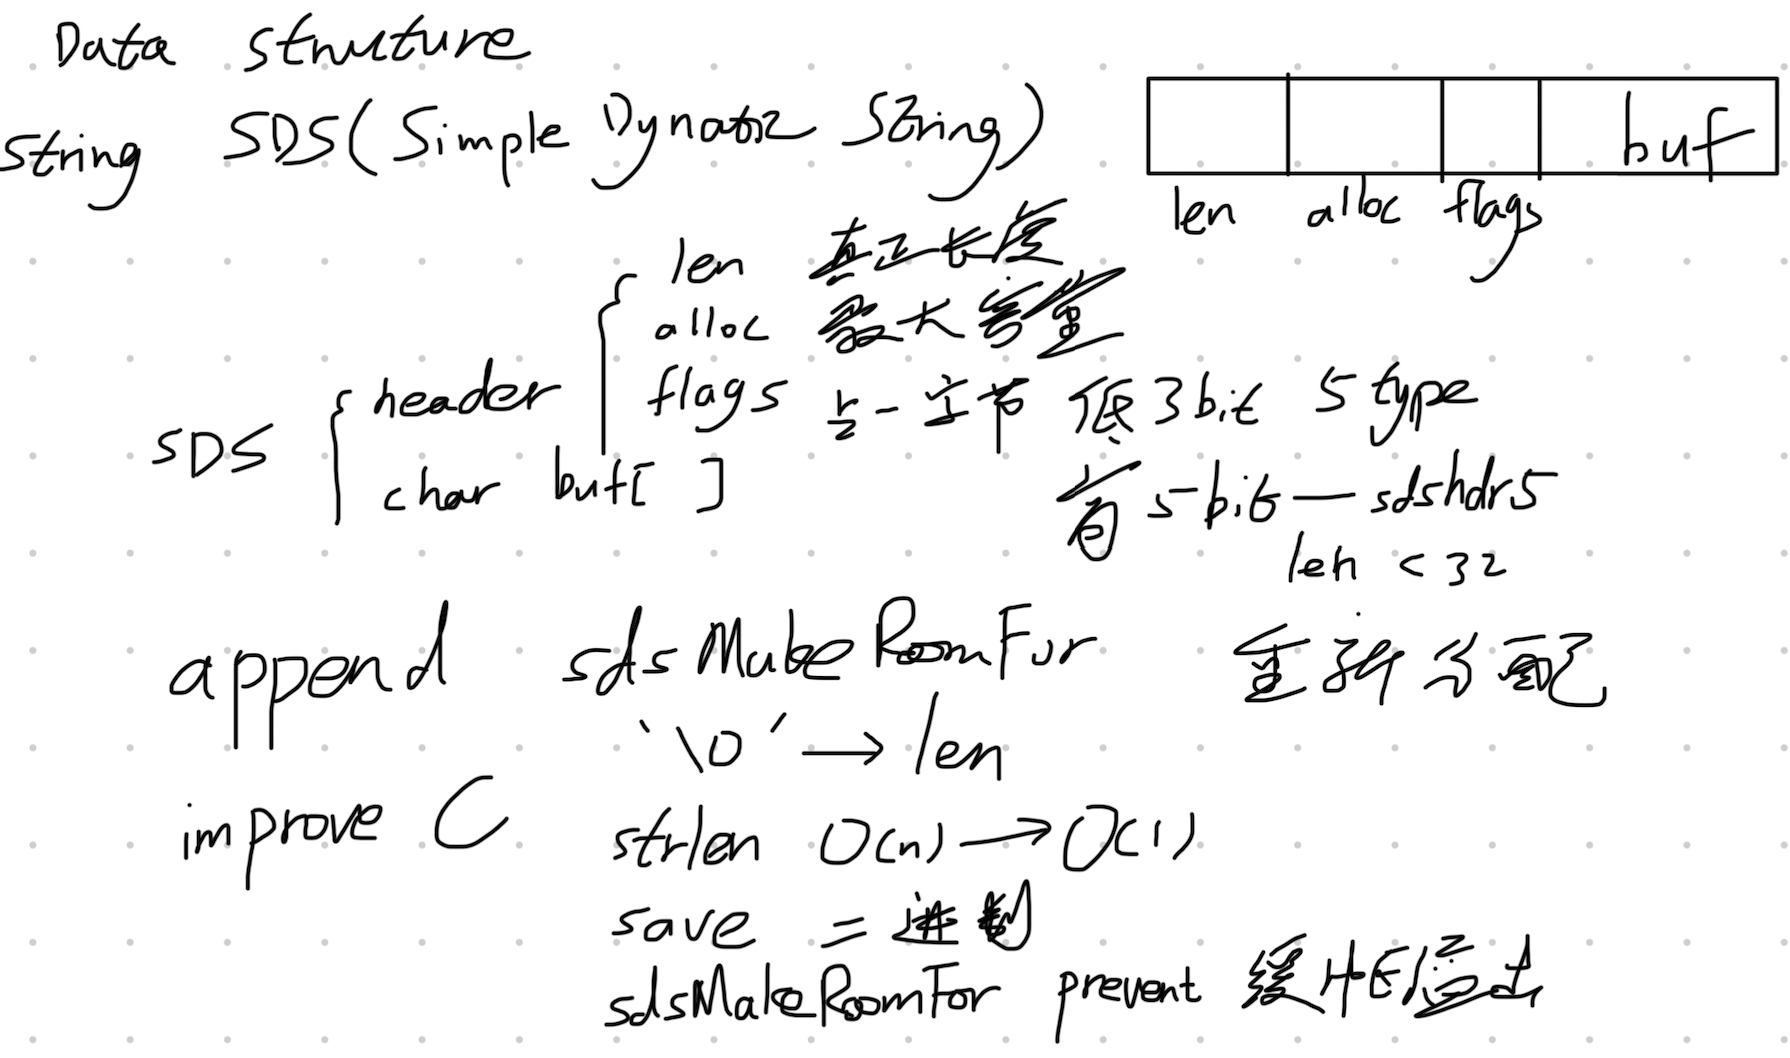 Data structure
String SDS(Simple Dynamic String)
buf
len alloc flags
len 真正长度
alloc 最大容量
header flags 占一字节 低3bit 5 type
SDS
char buf[ ] 高 5bit — sdshdr5
len < 32
append sdsMakeRoomFor 重新分配
'\0' → len
improve C
strlen O(n) → O(1)
save 二进制
sdsMakeRoomFor prevent 缓冲区溢出